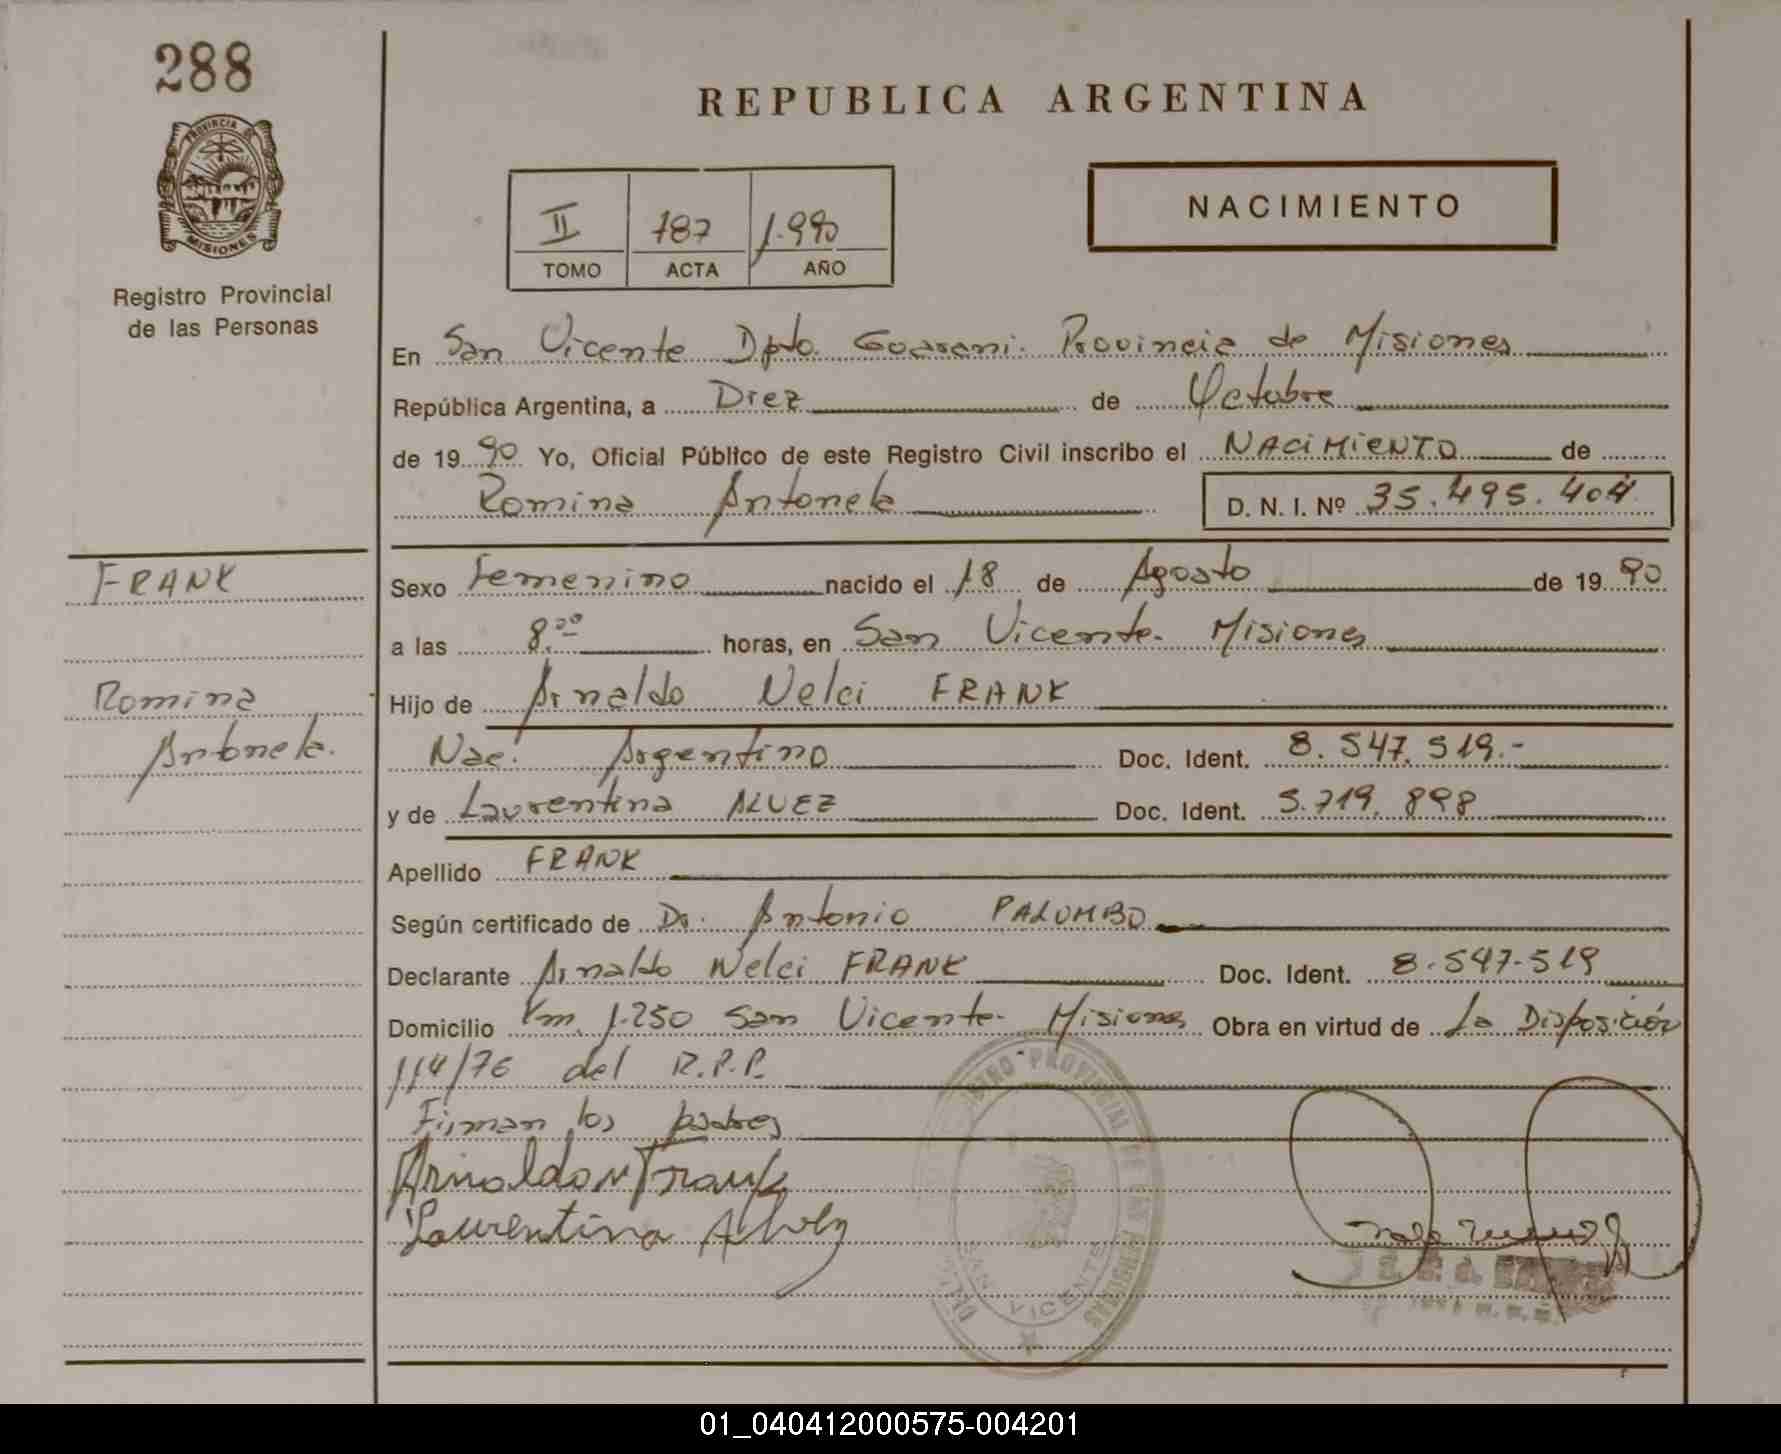 288
PROVINCIA DE
MISIONES
Registro Provincial
de las Personas
REPUBLICA ARGENTINA
II 187 1.990
TOMO ACTA AÑO
NACIMIENTO
En San Vicente Dpto. Guarani. Provincia de Misiones
República Argentina, a Diez de Octubre
de 19 90 Yo, Oficial Público de este Registro Civil inscribo el NACIMIENTO de
Romina Antonela D. N. I. Nº 35.495.404
FRANK
Romina
Antonela.
Sexo Femenino nacido el 18 de Agosto de 19 90
a las 8.00 horas, en San Vicente - Misiones
Hijo de Arnaldo Nelci FRANK
Nac. Argentino Doc. Ident. 8.547.519.-
y de Laurentina ALVEZ Doc. Ident. 5.719.898
Apellido FRANK
Según certificado de Dr. Antonio PALOMBO
Declarante Arnaldo Nelci FRANK Doc. Ident. 8.547.519
Domicilio Km. 1.250 San Vicente - Misiones Obra en virtud de La Disposición
114/76 del R.P.P.
Firman los padres
Arnoldo N Frank
Laurentina Alvez
REGISTRO PROVINCIAL DE LAS PERSONAS
SAN VICENTE
01_040412000575-004201